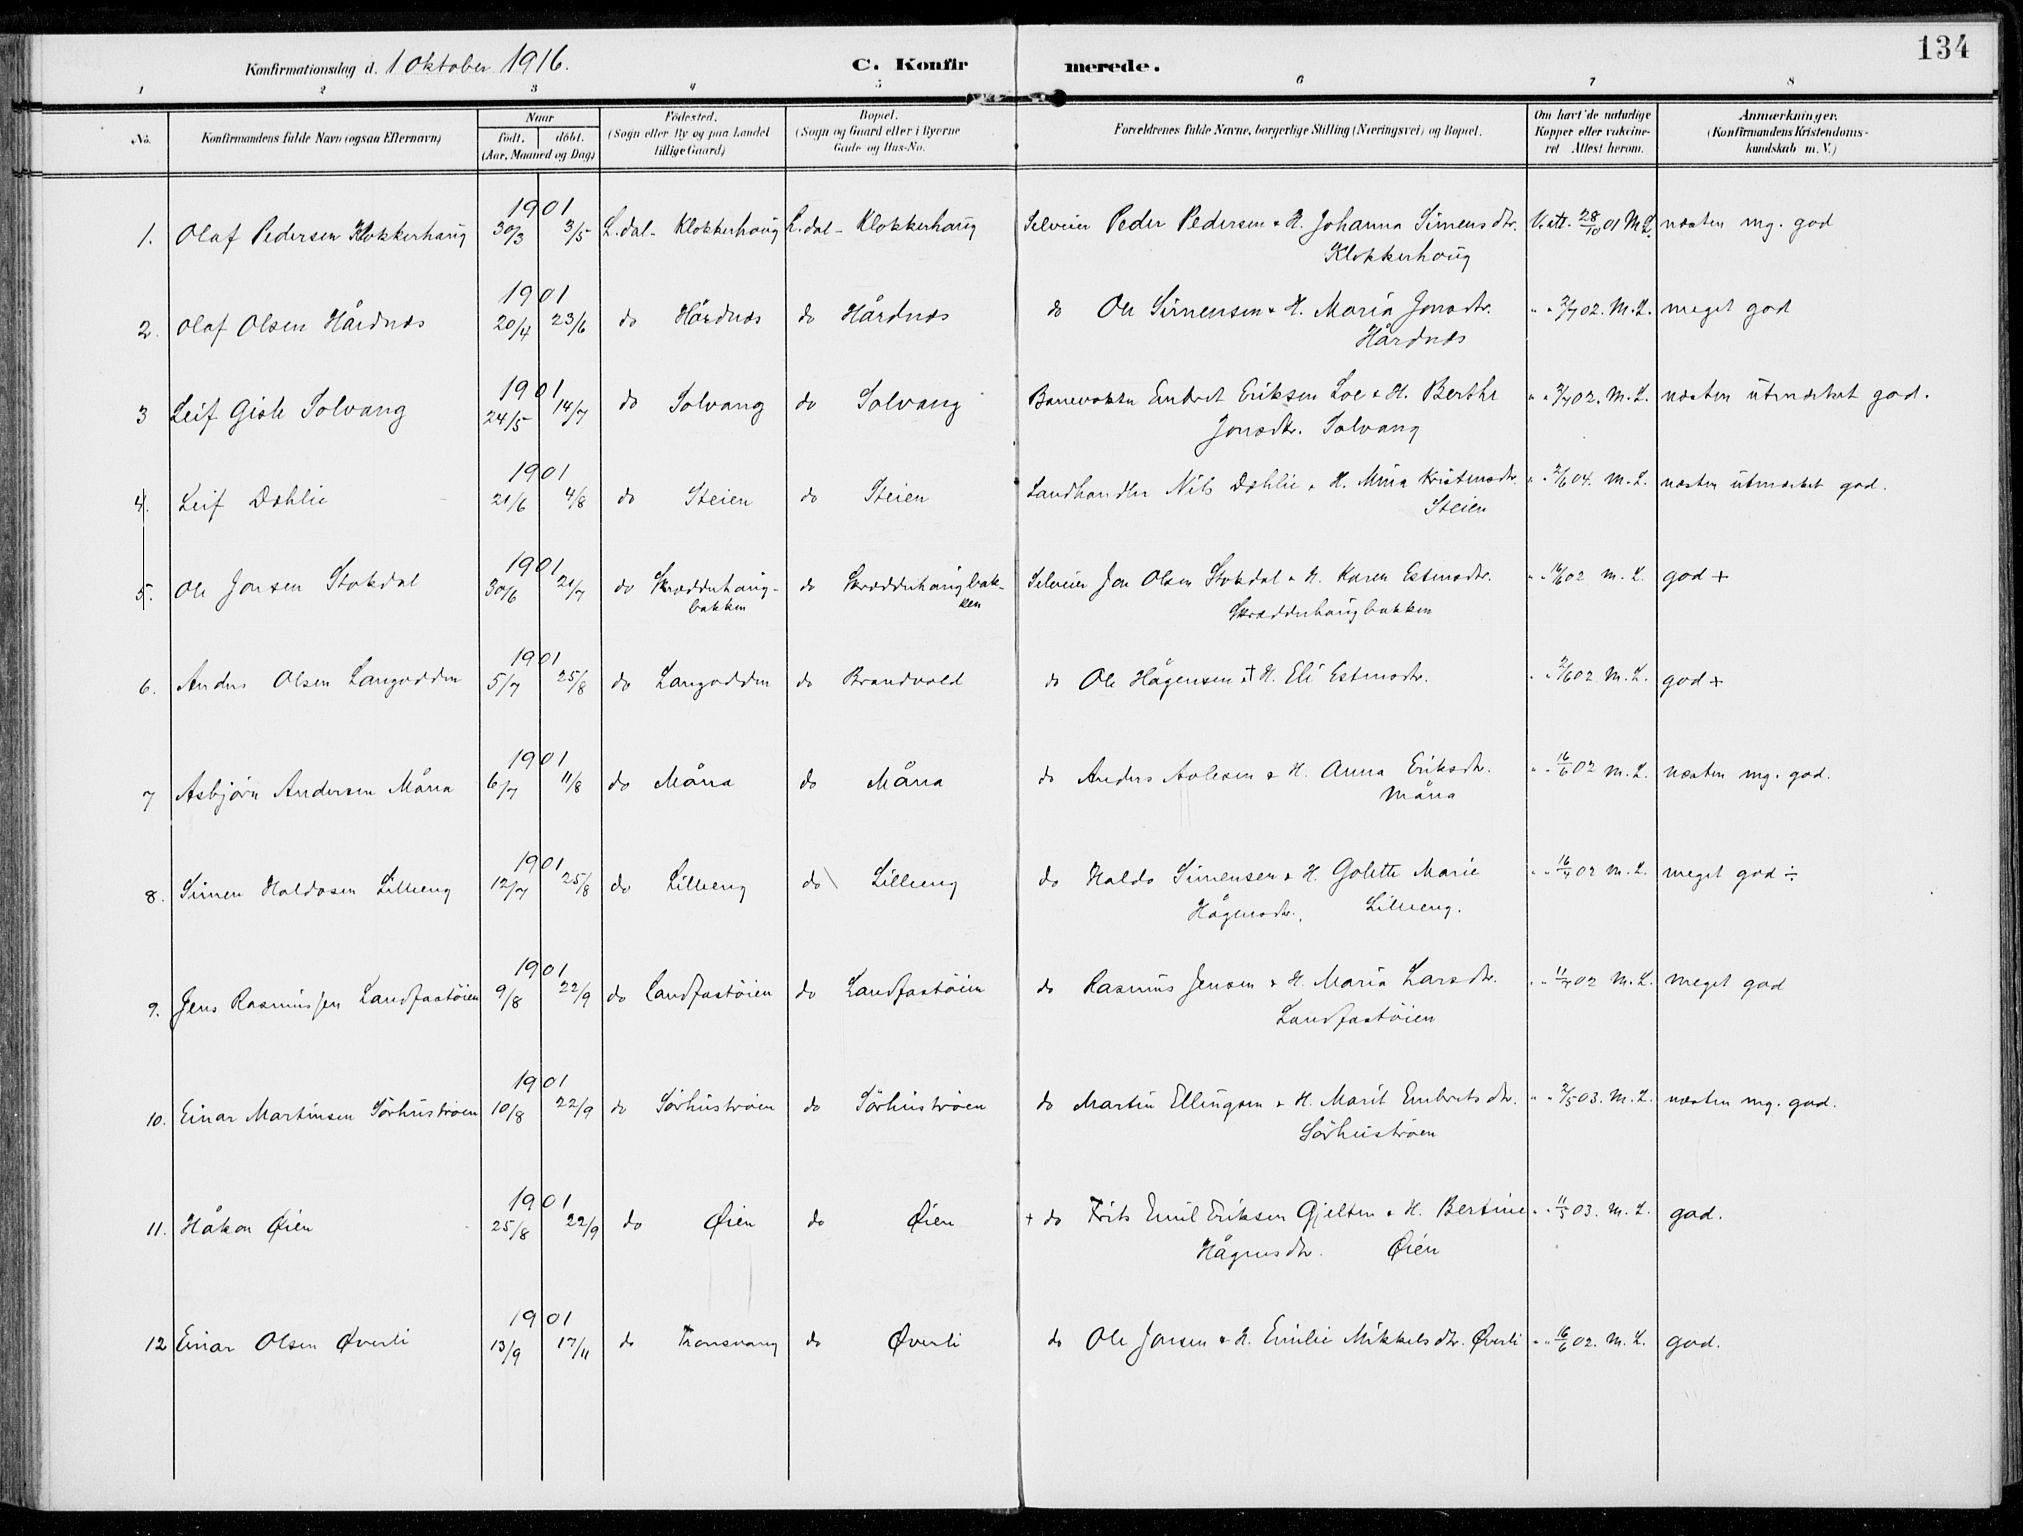 134
Konfirmationsdag d. 1 Oktober 1916.
C. Konfirmerede.
1 2 3 4 5 6 7 8
No.
Konfirmandens fulde Navn (ogsaa Efternavn)
Naar
født. døbt.
(Aar, Maaned og Dag)
Fødested.
(Sogn eller By og paa Landet
tillige Gaard)
Bopæl.
(Sogn og Gaard eller i Byerne
Gade og Hus-No.
Forældrenes fulde Navne, borgerlige Stilling (Næringsvei) og Bopæl.
Om havt de naturlige
Kopper eller vakcine-
ret Attest herom.
Anmærkninger.
(Konfirmandens Kristendoms-
kundskab m. V.)
1901
1. Olaf Pedersen Klokkerhaug 30/3 3/5 L.dal - Klokkerhoug L.dal - Klokkerhaug Selveier Peder Pedersen & H. Johanna Simensdtr. V. att. 28/10 01 M. L. næsten mg. god
Klokkerhoug
1901
2. Olaf Olsen Hårdnæs 20/4 23/6 do Hårdnæs do Hårdnæs do Ole Simensen & H. Maria Jonsdtr. " " 2/7 02. M. L. meget god
Hårdnæs
1901
3 Leif Gisle Solvang 24/5 14/7 do Solvang do Solvang Banevokter Embret Eriksen Loe & H. Berthe " " 3/7 02. M. L. næsten utmærket god.
Jonsdtr. Solvang
1901
4. Leif Dæhlie 21/6 4/8 do Steien do Steien Landhandler Nils Dæhlie & H. Mina Kristensdtr. " 2/6 04. M. L. næsten utmærket god.
Steien
1901
5. Ole Jonsen Stokdal 30/6 21/7 do Skrædderhaug- do Skrædderhaugbak- Selveier Jon Olsen Stokdal & H. Karen Estensdtr. " " 16/6 02 M. L. god +
bakken ken Skrædderhaugbakken
1901
6. Anders Olsen Langodden 5/7 25/8 do Langodden do Brandvold do Ole Hågensen & † H. Eli Estensdtr. " " 2/6 02 M. L. god +
1901
7 Asbjørn Andersen Måna 6/7 11/8 do Måna do Måna do Anders Avlesen & H. Anna Eriksdtr. " " 16/6 02 M. L. næsten mg. god.
Måna
1901
8. Simen Haldosen Lilleeng 12/7 25/8 do Lilleeng do Lilleeng do Haldo Simensen & H. Golette Marie " " 16/7 02 M. L. meget god ÷
Hågensdtr. Lilleeng.
1901
9. Jens Rasmussen Landfastøien 9/8 22/9 do Landfastøien do Landfastøien do Rasmus Jensen & H. Maria Larsdtr. " " 11/7 02 M. L. meget god
Landfastøien
1901
10. Einar Martinsen Sørhustrøen 10/8 22/9 do Sørhustrøen do Sørhustrøen do Martin Ellingsen & H. Marit Embretsdtr. " " 2/5 03. M. L. næsten mg. god.
Sørhustrøen
1901
11. Håkon Øien 25/8 22/9 do Øien do Øien + do Frits Emil Eriksen Gjelten & H. Bertine " " 11/5 03. M. L. god.
Hågensdtr. Øien
1901
12 Einar Olsen Øverli 13/9 17/11 do Tronsvang do Øverli do Ole Jonsen & H. Emilie Mikkelsdtr. Øverli " " 16/6 02. M. L. god.